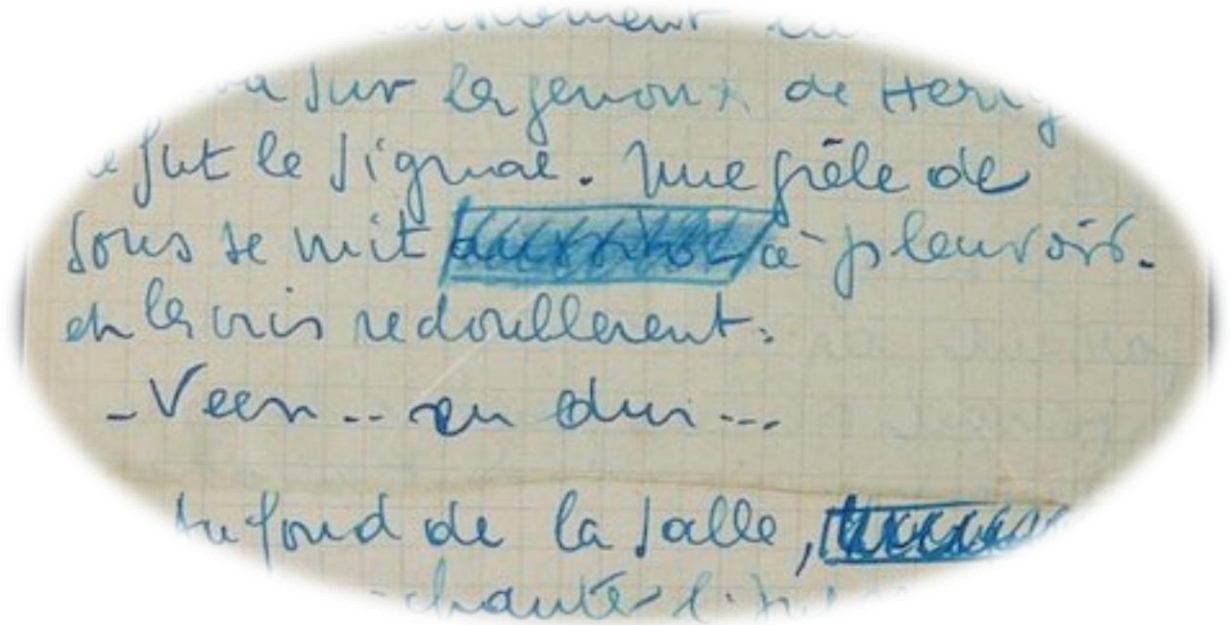 sur les genoux de Henry
fut le signal. Une grêle de
sous se mit à pleuvoir.
et les cris redoublèrent.
- Veen .. en dui ...
Au fond de la salle,
chanter